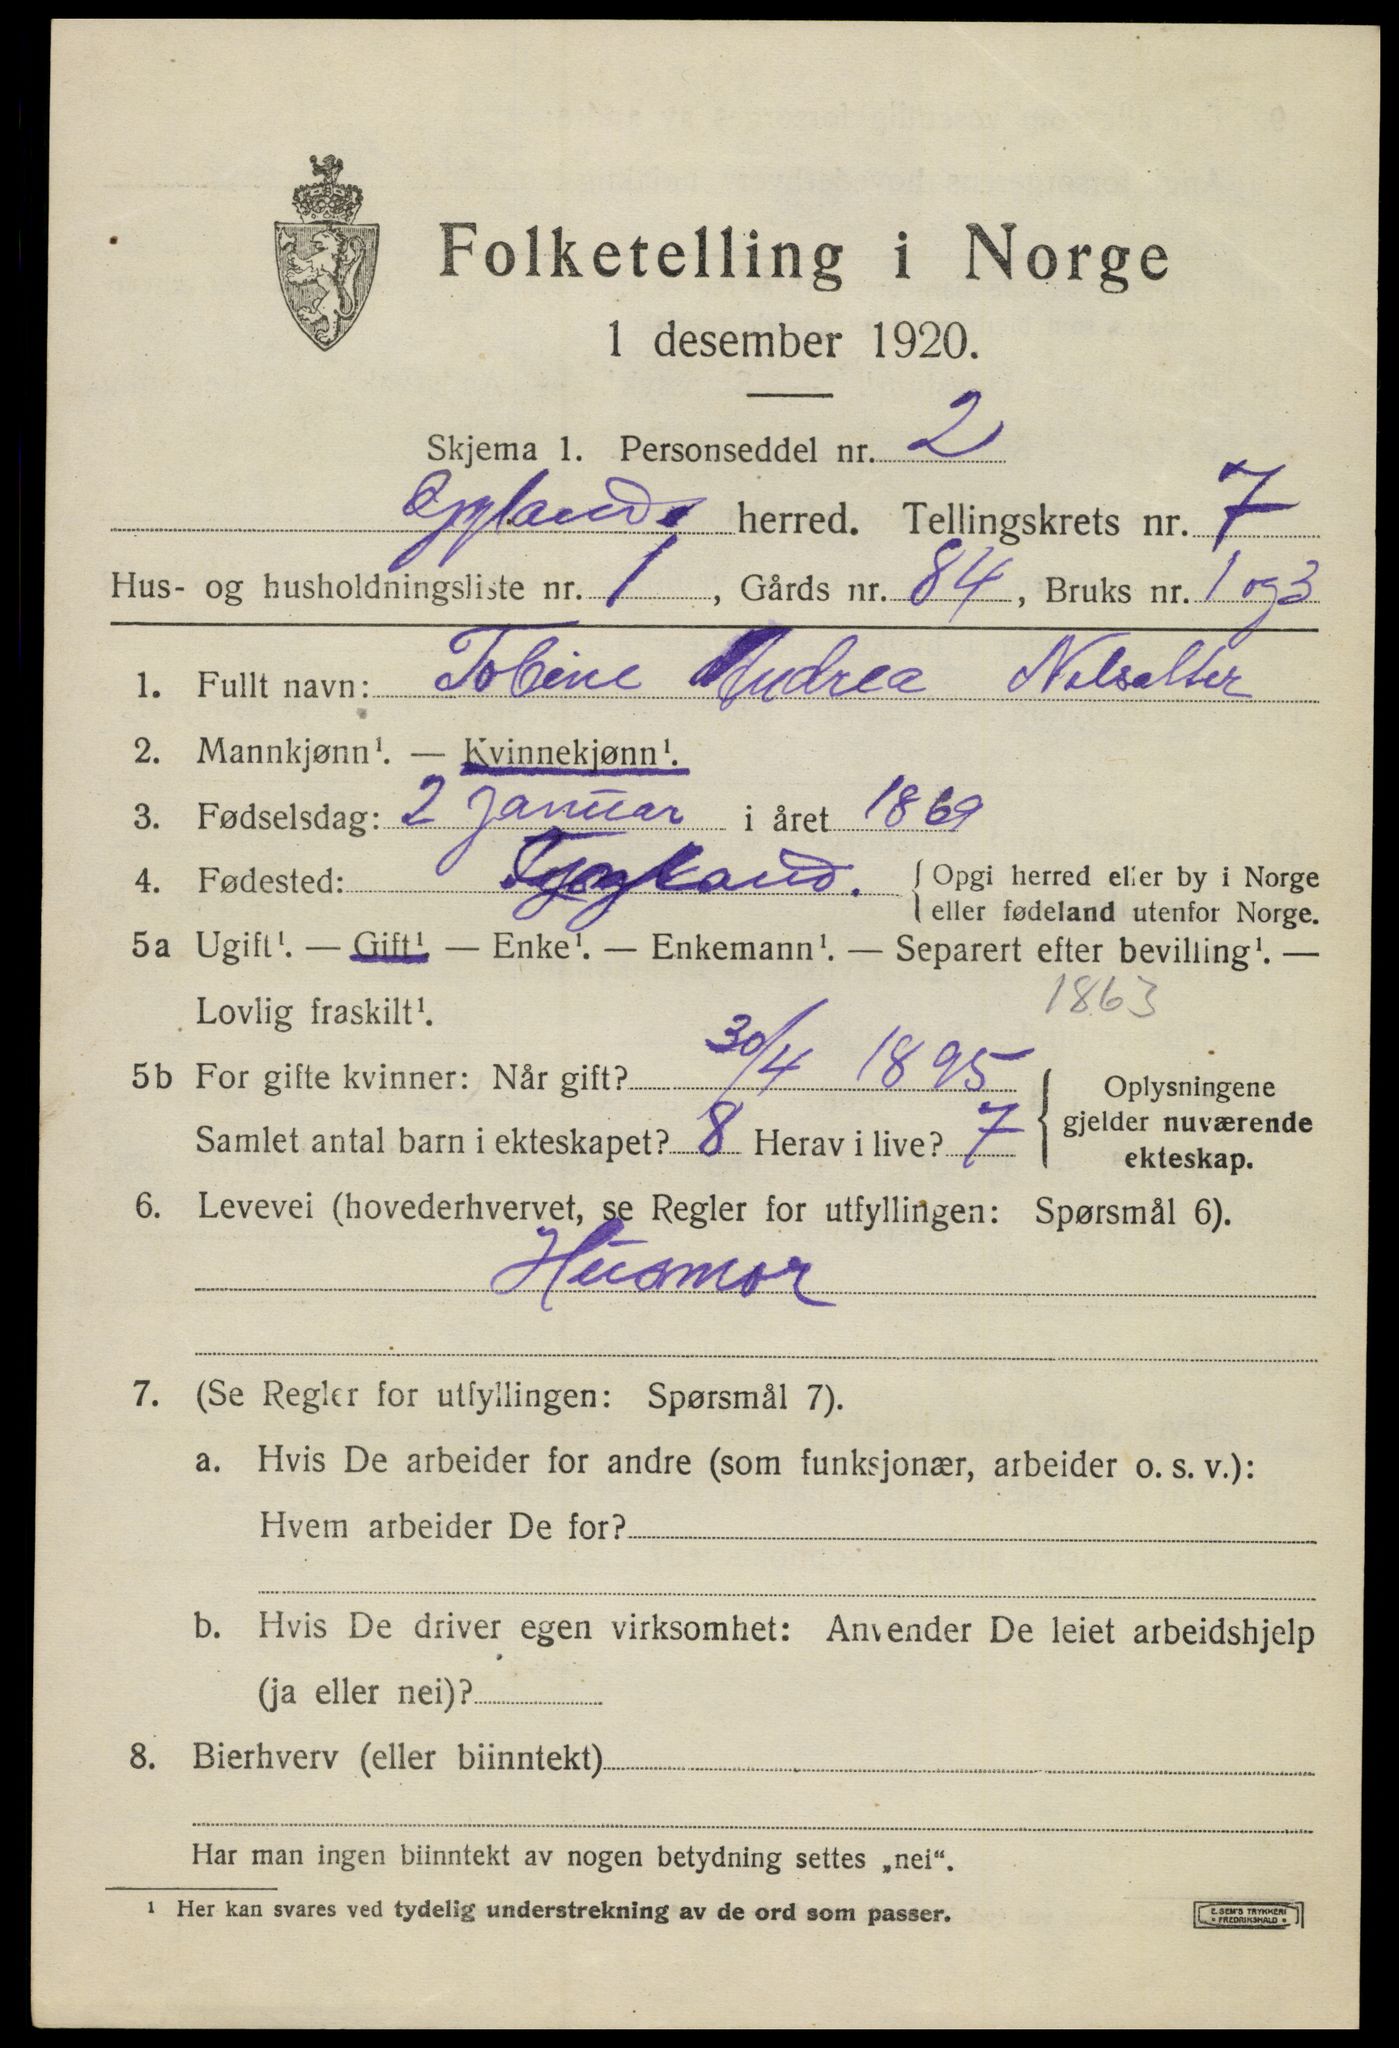 Folketelling i Norge
1 desember 1920.
Skjema 1. Personseddel nr. 2
herred. Tellingskrets nr. 7
Hus- og husholdningsliste nr. 1, Gårds nr. 84, Bruks nr. 1 og 3
1. Fullt navn: Tobine Andrea
2. Mannkjønn¹. — Kvinnekjønn¹.
3. Fødselsdag: 2 januar i året 1869
4. Fødested: { Opgi herred eller by i Norge
eller fødeland utenfor Norge.
5a Ugift¹. — Gift¹. — Enke¹. — Enkemann¹. — Separert efter bevilling¹. —
Lovlig fraskilt¹. 1863
5b For gifte kvinner: Når gift? 30/4 1895 { Oplysningene
gjelder nuværende
Samlet antal barn i ekteskapet? 8 Herav i live? 7 ekteskap.
6. Levevei (hovederhvervet, se Regler for utfyllingen: Spørsmål 6).
Husmor
7. (Se Regler for utfyllingen: Spørsmål 7).
a. Hvis De arbeider for andre (som funksjonær, arbeider o. s. v.):
Hvem arbeider De for?
b. Hvis De driver egen virksomhet: Anvender De leiet arbeidshjelp
(ja eller nei)?
8. Bierhverv (eller biinntekt)
Har man ingen biinntekt av nogen betydning settes „nei“.
¹ Her kan svares ved tydelig understrekning av de ord som passer.
E. SEM'S TRYKKERI
FREDRIKSHALD